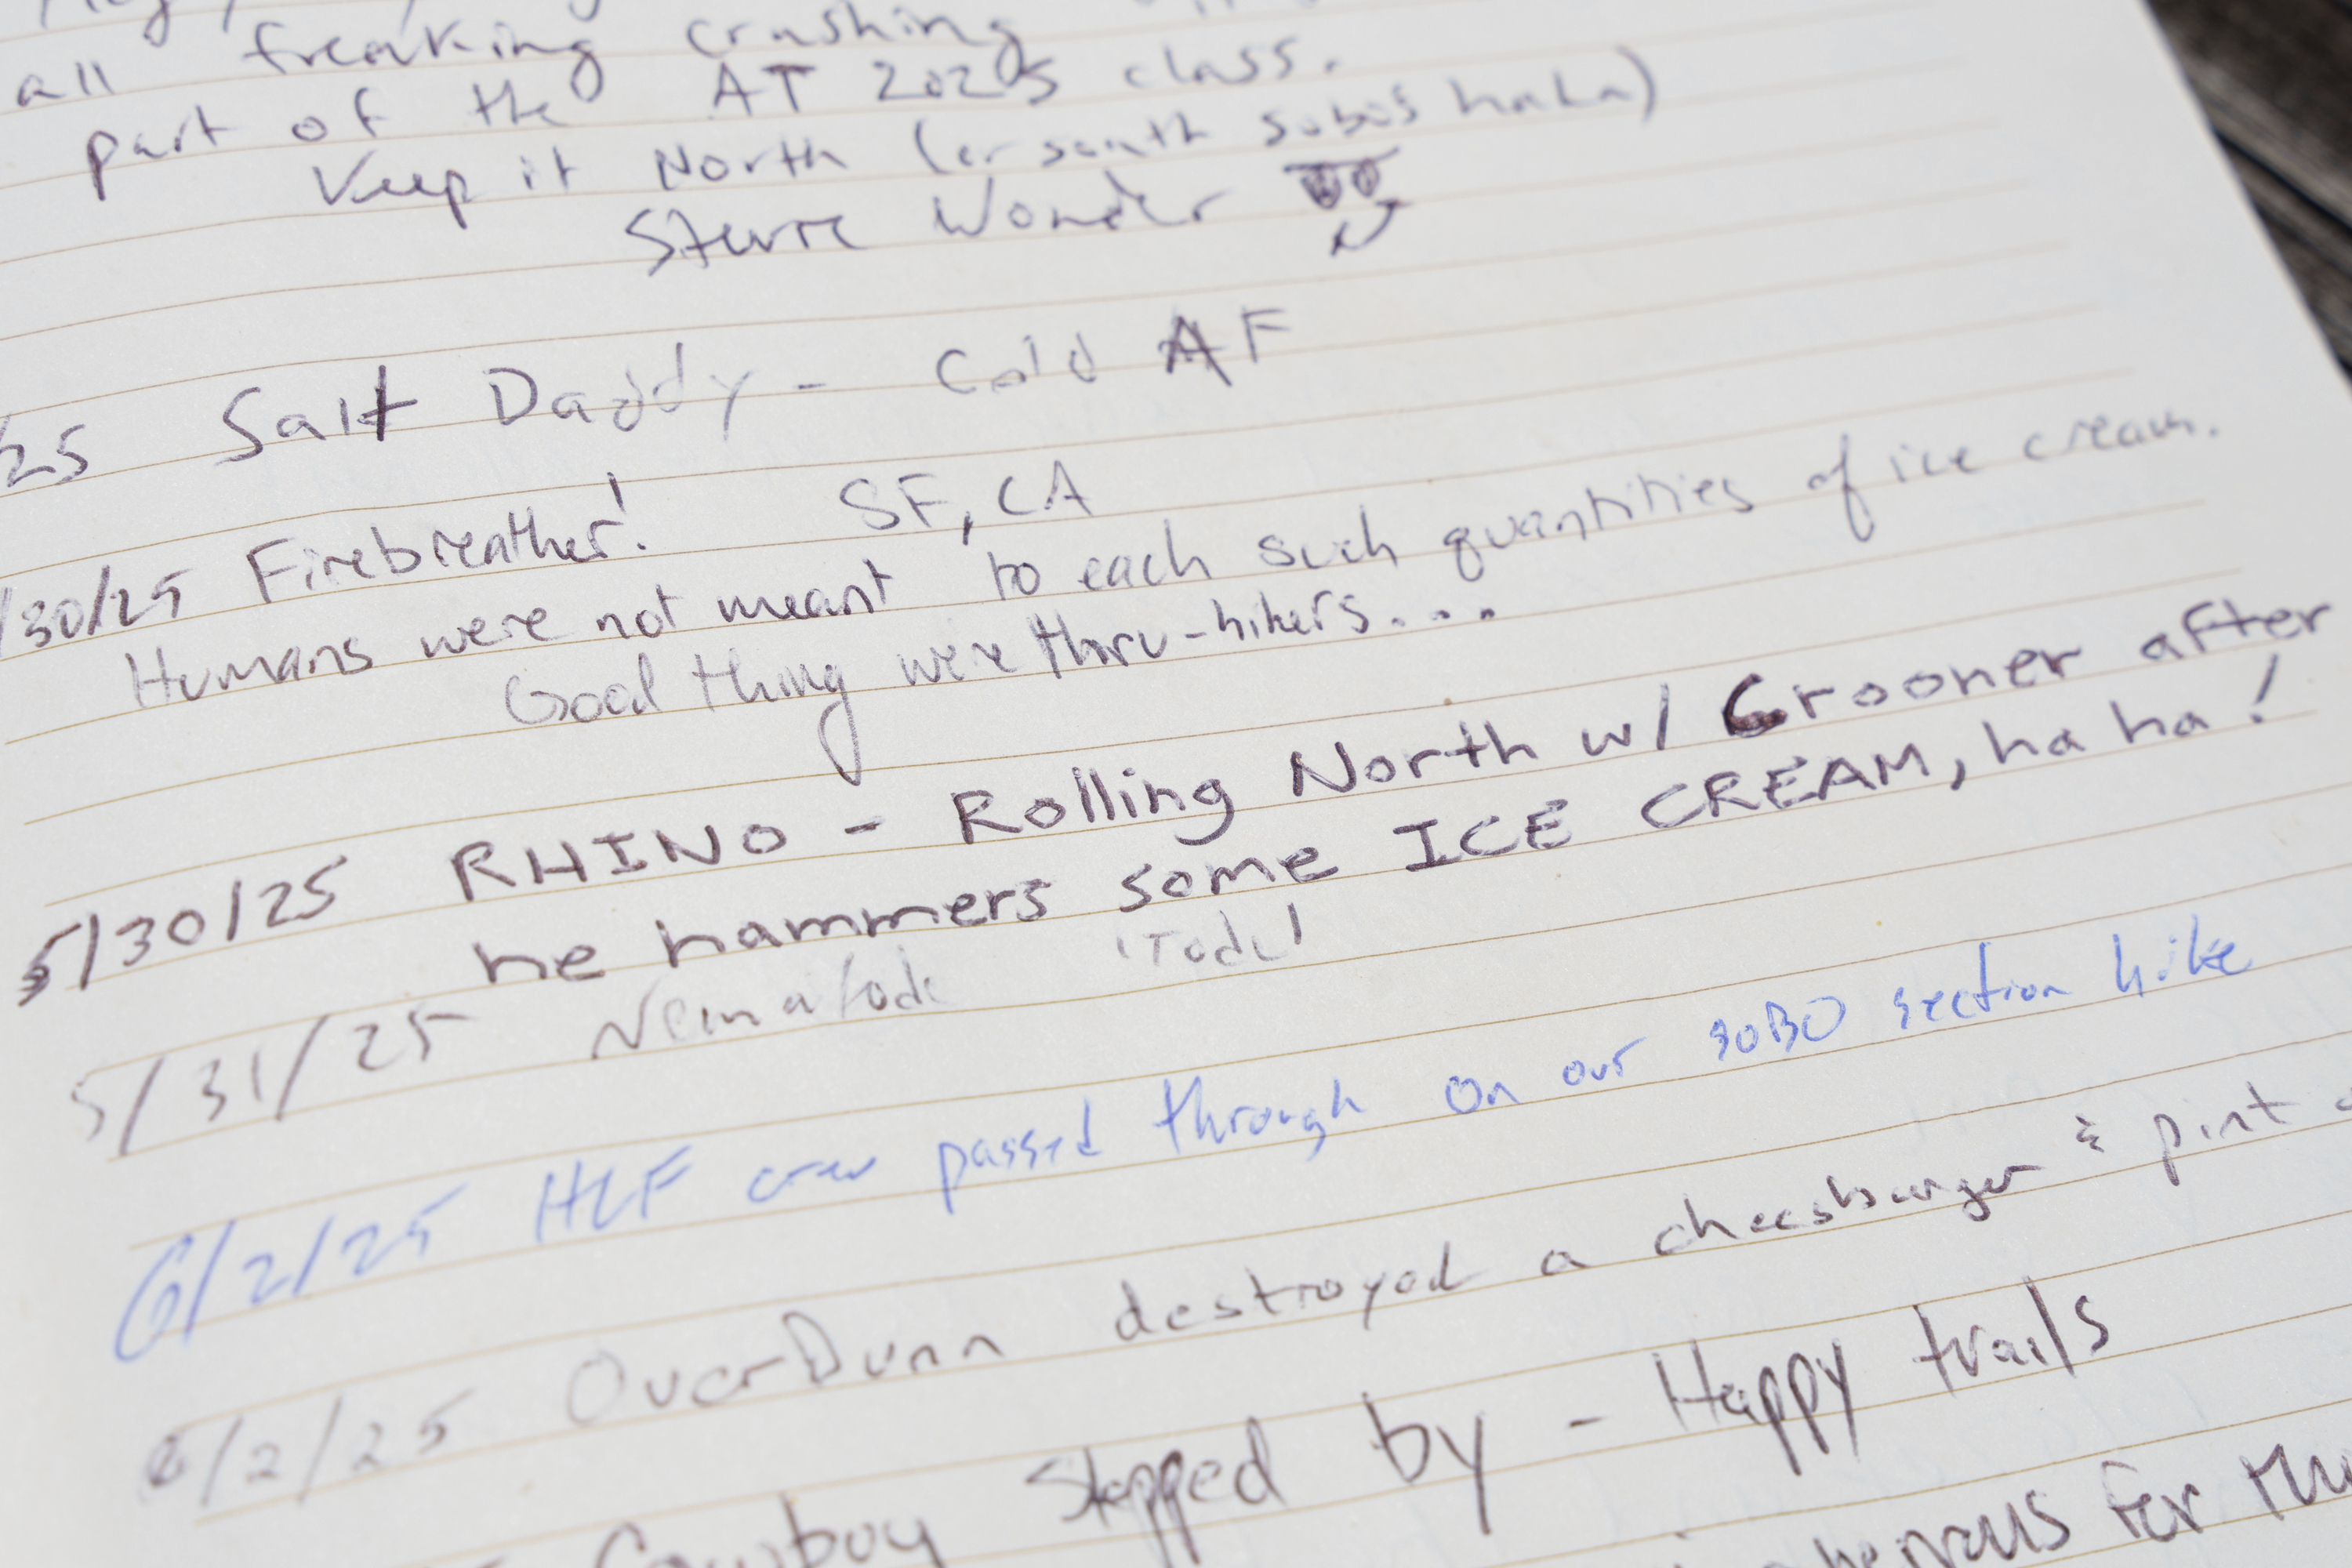 all freaking crushing
part of the AT 2025 class.
Keep it North (or south sobos haha)
Stevie Wonder
/25 Salt Daddy - Cold AF
/30/25 Firebreather! SF, CA
Humans were not meant to each such quantities of ice cream.
Good thing we're thru-hikers....
5/30/25 RHINO - Rolling North w/ Grooner after
he hammers some ICE CREAM, ha ha!
5/31/25 Nematode 'Tode'
6/2/25 HLF crew passed through on our SOBO section hike
6/2/25 OverDunn destroyed a cheesburger & pint
Cowboy stopped by - Happy trails
for